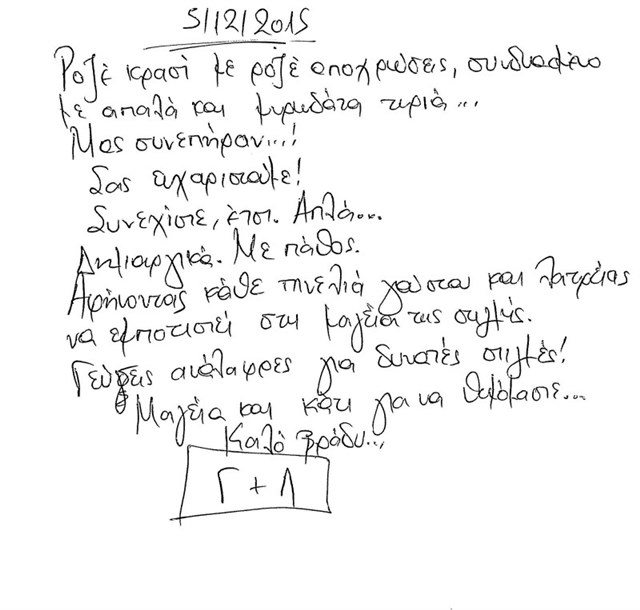 5/12/2015
Ροζέ κρασί με ροζέ αποχρώσεις, συνδυασμένο
με απαλά και μυρωδάτα τυριά...
Μας συνεπήραν...!
Σας ευχαριστούμε!
Συνεχίστε, έτσι. Απλά...
Δημιουργικά. Με πάθος.
Αφήνοντας κάθε πινελιά γούστου και λατρείας
να εμποτιστεί στη μαγεία της στιγμής.
Γεύσεις ανάλαφρες για δυνατές στιγμές!
Μαγεία και κάτι για να θυμόμαστε...
Καλό βράδυ...
Γ + Λ